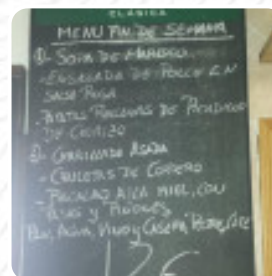 CLÁSICA
MENU FIN DE SEMANA
1- SOPA DE MARISCO
- ENSALADA DE POLLO EN
SALSA ROSA
- PATATAS RELLENAS DE
DE CHORIZO
2- ASADA
- CHULETAS DE CORDERO
- BACALAO A LA MIEL, CON
PASAS Y PIÑONES
PAN, AGUA, VINO Y CASERA, POSTRE, CAFE
12€